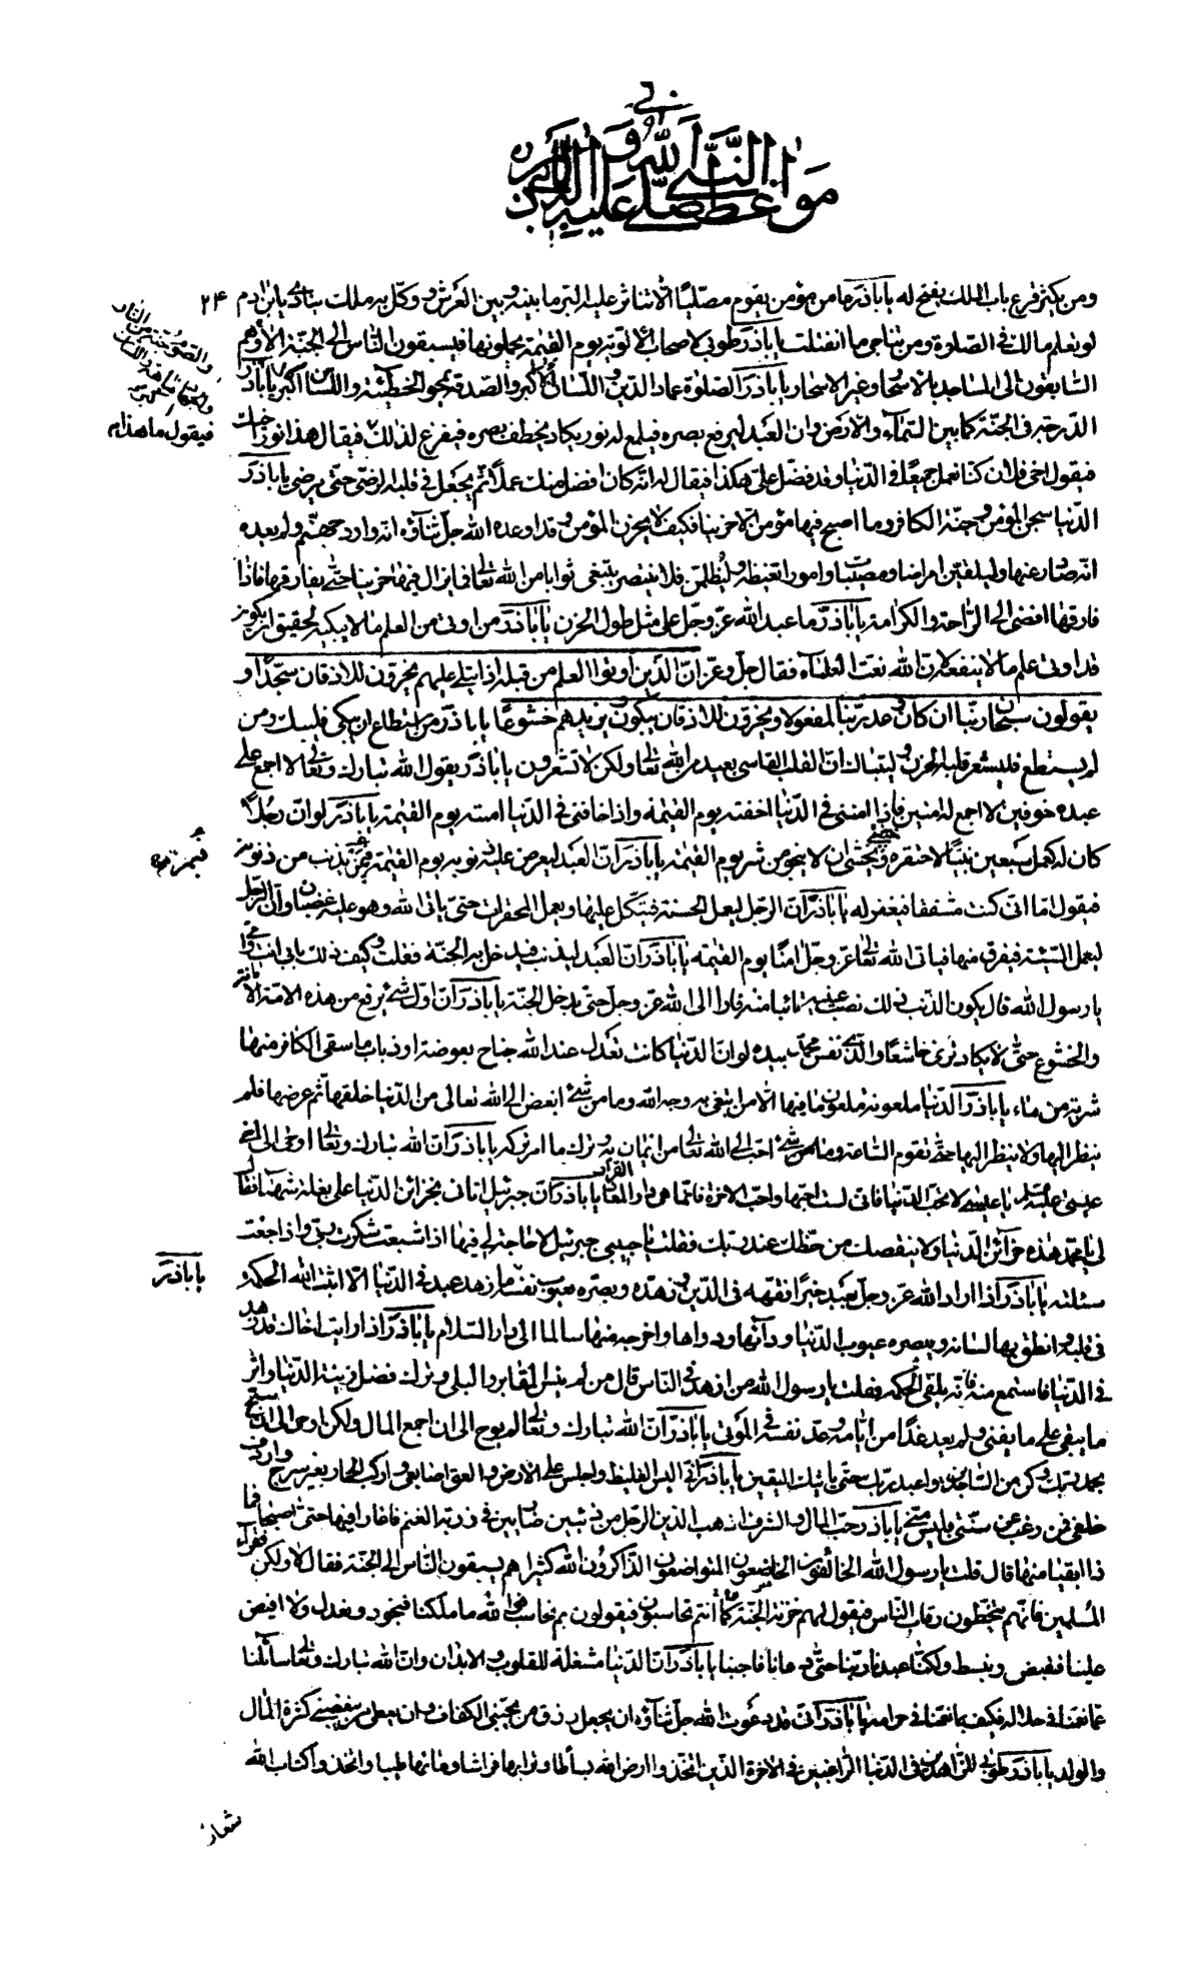 في
مواعظ النبي صلى الله عليه وآله لابي ذر
ومن يكثر قرع باب الملك يفتح له يا باذر ما من مؤمن يقوم مصلّيا الا تناثر عليه البر ما بينه وبين العرش ووكّل به ملك ينادى يا بن ادم
٢۴
لو تعلم مالك فى الصلوة ومن تناجى ما انفتلت يا باذر طوبى لاصحاب الالوية يوم القيمة يحملونها فيسبقون الناس الى الجنّة الا وهم
السّابقون الى المساجد بالاسحار وغير الاسحار يا باذر الصلوة عماد الدين واللسان اكبر والصدقة تمحو الخطيئة واللسان اكبر يا باذر
والصوم جنة من النار واللسان اكبر
الدّرجة فى الجنّة كما بين السّماء والارض وان العبد ليرفع بصره فيلمع له نور يكاد يخطف بصره فيفزع لذلك فيقال هذا نور اخيك
فيقول ما هذا
فيقول اخى فلان كنّا نعمل جميعًا فى الدّنيا وقد فضّل علىّ هكذا فيقال له انّه كان افضل منك عملًا ثم يجعل فى قلبه الرضى حتى يرضى يا باذر
الدنيا سجن المؤمن وجنّة الكافر وما اصبح فيها مؤمن الا حزينا فكيف لا يحزن المؤمن وقد اوعده الله جلّ ثناؤه انّه وارد جهنّم ولم يعده
انّه صادر عنها وليلقين امراضا ومصيبات وامورا تغيظه وليظلمنّ فلا ينتصر يبتغى ثوابا من الله تعالى فما يزال فيها حزينا حتّى يفارقها فاذا
فارقها افضى الى الرّاحة والكرامة يا باذر ما عبد الله عزّ وجلّ على مثل طول الحزن يا باذر من اوتى من العلم ما لا يبكيه لحقيق ان يكون
قد اوتى علم ما لا ينفعه لانّ الله نعت العلماء فقال جلّ وعزّ انّ الّذين اوتوا العلم من قبله اذا يتلى عليهم يخرّون للاذقان سجّدًا و
يقولون سبحان ربّنا ان كان وعد ربّنا لمفعولا ويخرّون للاذقان يبكون ويزيدهم خشوعًا يا باذر من استطاع ان يبكى فليبك ومن
لم يستطع فليشعر قلبه الحزن وليتباك انّ القلب القاسى بعيد من الله تعالى ولكن لا تشعرون يا باذر يقول الله تبارك وتعالى لا اجمع على
عبد خوفين ولا اجمع له امنين فاذا امننى فى الدّنيا اخفته يوم القيمة واذا خافنى فى الدّنيا امنته يوم القيمة يا باذر لو انّ رجلًا
كان له كعمل سبعين نبيّا لاحتقره وخشى ان لا ينجو من شر يوم القيمة يا باذر انّ العبد ليعرض عليه ذنوبه يوم القيمة فيمن ذنب من ذنوبه
فيقول امّا انّى كنت مشفقا فيغفر له يا باذر انّ الرجل ليعمل الحسنة فيتّكل عليها ويعمل المحقرات حتّى يأتى الله وهو عليه غضبان وانّ الرّجل
ليعمل السّيّئة فيفرق منها فياتى الله تعالى عزّ وجلّ امنًا يوم القيمة يا باذر انّ العبد ليذنب فيدخل به الجنّة فقلت وكيف ذلك بابى انت وامّى
يا رسول الله قال يكون الذنب ذلك نصب عينيه تائبا منه فارّا الى الله عزّ وجلّ حتى يدخل الجنّة يا باذر انّ اوّل شىء يرفع من هذه الامّة الامانة
والخشوع حتّى لا يكاد ترى خاشعًا والّذى نفس محمّد بيده لو انّ الدنيا كانت تعدل عند الله جناح بعوضة او ذباب ما سقى الكافر منها
شربة من ماء يا باذر الدّنيا ملعونة ملعون ما فيها الّا من ابتغى به وجه الله وما من شىء ابغض الى الله تعالى من الدّنيا خلقها ثم عرضها فلم
ينظر اليها ولا ينظر اليها حتّى تقوم السّاعة وما من شىء احبّ الى الله تعالى من ايمان به وترك ما امر بتركه يا باذر انّ الله تبارك وتعالى اوحى الى اخى
عيسى عليه السلام يا عيسى لا تحبّ الدّنيا فانّى لست احبّها واحبّ الاخرة فانّما هى دار المعاد يا باذر انّ جبرئيل اتانى بخزائن الدّنيا على بغلة شهباء فقال
لى يا محمد هذه خزائن الدّنيا ولا ينقصك من حظّك عند ربّك فقلت يا حبيبى جبرئيل لا حاجة لى فيها اذا شبعت شكرت ربى واذا جعت
سئلته يا باذر اذا اراد الله عزّ وجلّ بعبد خيرًا فقّهه فى الدّين وزهّده فى الدّنيا وبصّره بعيوب نفسه ما زهد عبد فى الدّنيا الّا اثبت الله الحكمة
يا باذر
فى قلبه وانطق بها لسانه ويبصره عيوب الدّنيا وداءها ودواءها واخرجه منها سالما الى دار السّلام يا باذر اذا رايت اخاك قد زهد
فى الدّنيا فاستمع منه فانّه يلقى الحكمة فقلت يا رسول الله من ازهد النّاس قال من لم ينس المقابر والبلى وترك فضل زينة الدّنيا واثر
ما يبقى على ما يفنى ولم يعد غدًا من ايّامه وعدّ نفسه فى الموتى يا باذر انّ الله تبارك وتعالى لم يوح الى ان اجمع المال ولكن اوحى الى ان سبّح
بحمد ربّك وكن من السّاجدين واعبد ربّك حتى ياتيك اليقين يا باذر انّى البس الغليظ واجلس على الارض والعق اصابعى واركب الحمار بغير سرج واردف
خلفى فمن رغب عن سنّتى فليس منّى يا باذر حبّ المال والشرف اذهب لدين الرّجل من ذئبين ضاريين فى زريبة الغنم فاغارا فيها حتى اصبحا فما
ذا ابقيا منها قال قلت يا رسول الله الخائفون الخاضعون المتواضعون الذّاكرون الله كثيرا هم يسبقون النّاس الى الجنّة فقال لا ولكن فقراء
المسلمين فانّهم يتخطّون رقاب النّاس فيقول لهم خزنة الجنّة كما انتم حتى تحاسبوا فيقولون بم نحاسب فوالله ما ملكنا فنجود ونعدل ولا افيض
علينا فنقبض ونبسط ولكنّا عبدنا ربّنا حتّى دعانا فاجبنا يا باذر انّ الدّنيا مشغلة للقلوب والابدان وانّ الله تبارك وتعالى سائلنا
عمّا نعّمنا فى حلاله فكيف بما نعّمنا فى حرامه يا باذر انّى قد دعوت الله جلّ ثناؤه ان يجعل رزق من يحبّنى الكفاف وان يعطى من يبغضنى كثرة المال
والولد يا باذر طوبى للزّاهدين فى الدّنيا الرّاغبين فى الاخرة الّذين اتّخذوا ارض الله بساطا وترابها فراشا وماءها طيبا واتّخذوا كتاب الله
شعارا